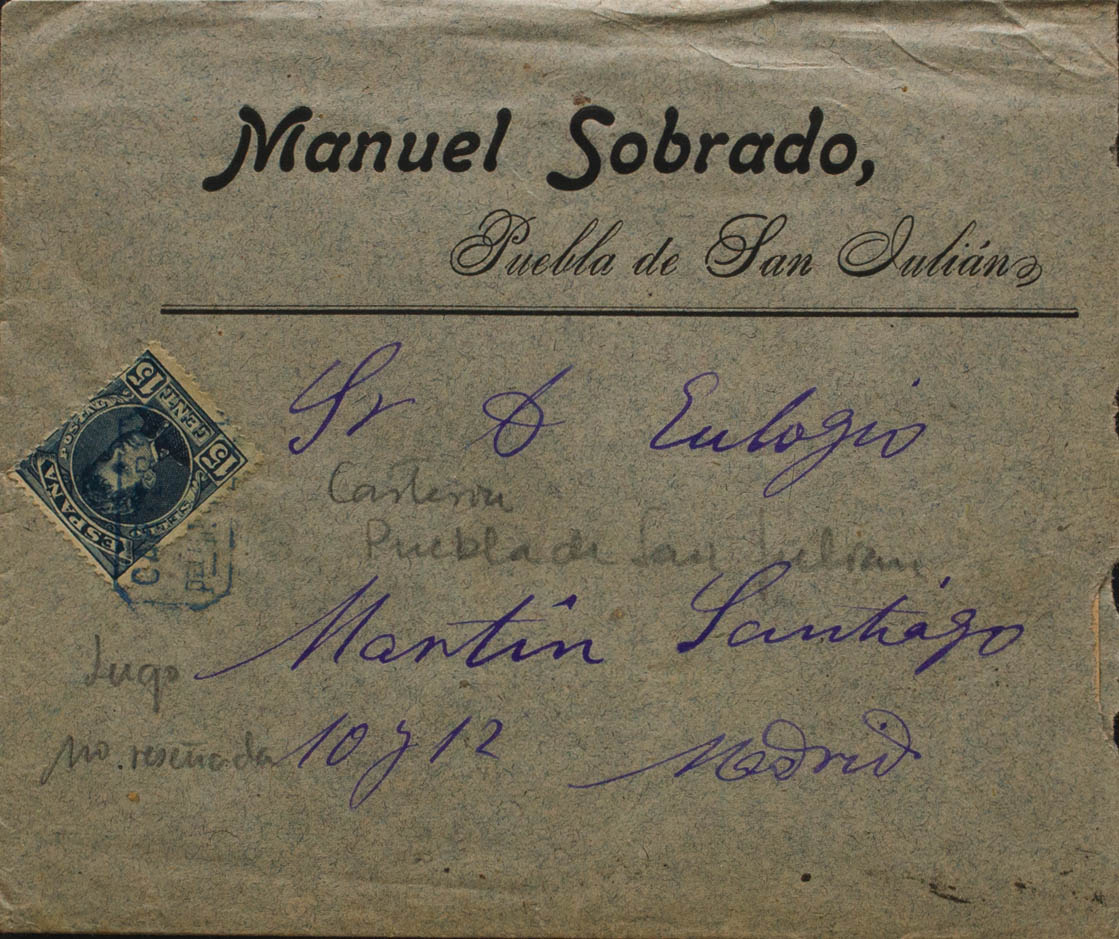 Manuel Sobrado,
Puebla de San Julián
15 CENT. 15
ESPAÑA
Sr D Eulogio
Puebla de San Julian
Martín Santiago
Lugo
10 y 12 Madrid
no reseñada